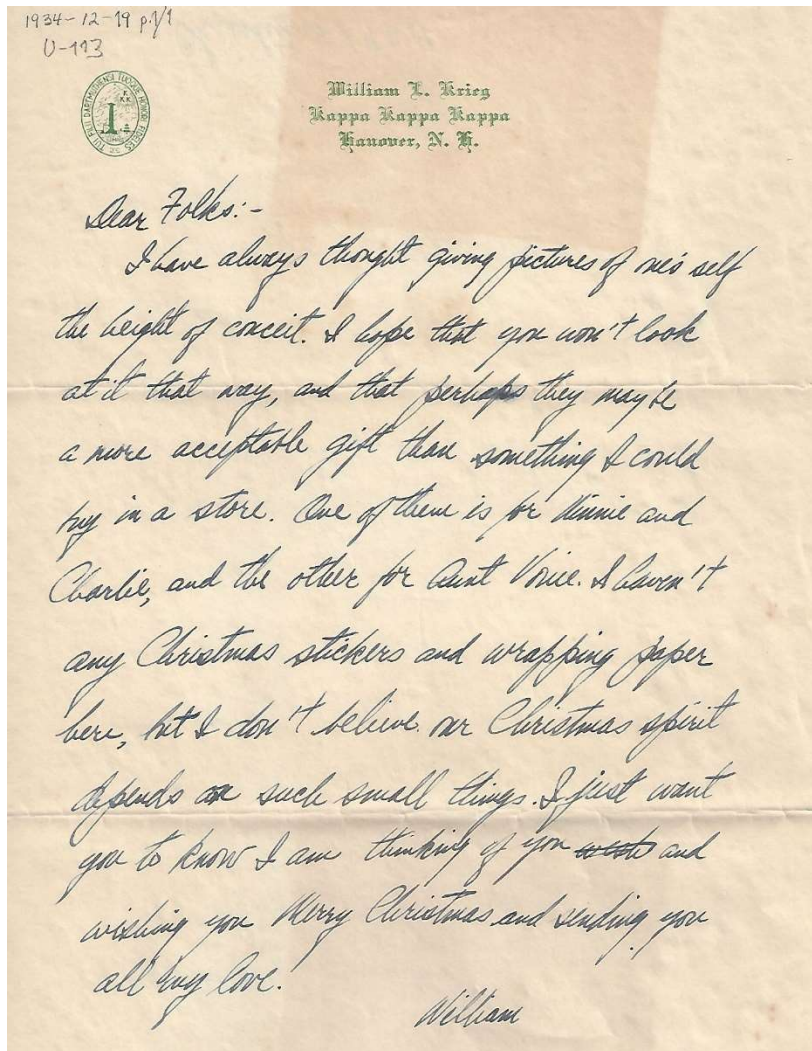 1934-12-19 p.1/1
U-113
William L. Krieg
Kappa Kappa Kappa
Hanover, N. H.
Dear Folks:-
I have always thought giving pictures of one's self
the height of conceit. I hope that you won't look
at it that way, and that perhaps they may be
a more acceptable gift than something I could
buy in a store. One of them is for Minnie and
Charlie, and the other for Aunt Voice. I haven't
any Christmas stickers and wrapping paper
here, but I don't believe our Christmas spirit
depends on such small things. I just want
you to know I am thinking of you and
wishing you Merry Christmas and sending you
all my love.
William